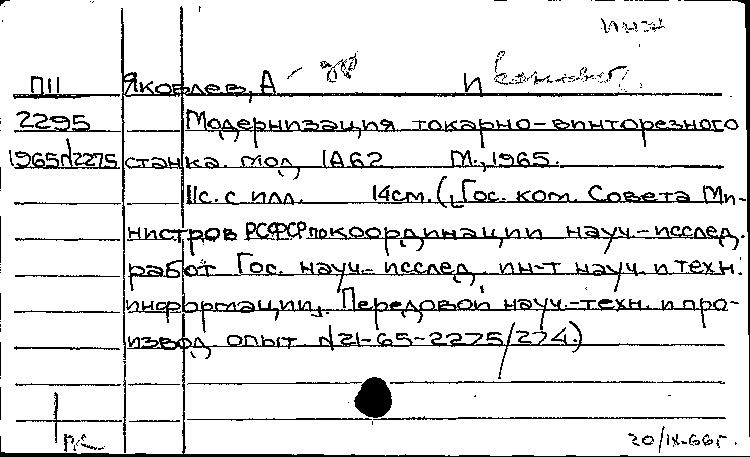 ПII Яковлев, А И
2295 Модернизация токарно-винторезного
1965/2275 станка мод 1А62 М., 1965.
11с. с илл. 14см. (Гос. ком. Совета Ми-
нистров РСФСР по координации науч.-исслед.
работ Гос. науч.-исслед. ин-т науч. и техн.
информации. Передовой науч.-техн. и про-
извод опыт N21-65-2275/274.)
20/IX-66г.